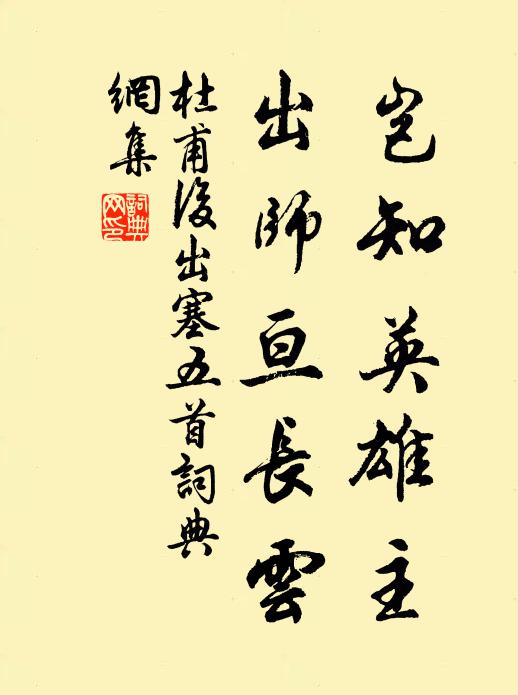 岂知英雄主
出師亘長雲
杜甫後出塞五首詞典
網集
詞典
网印